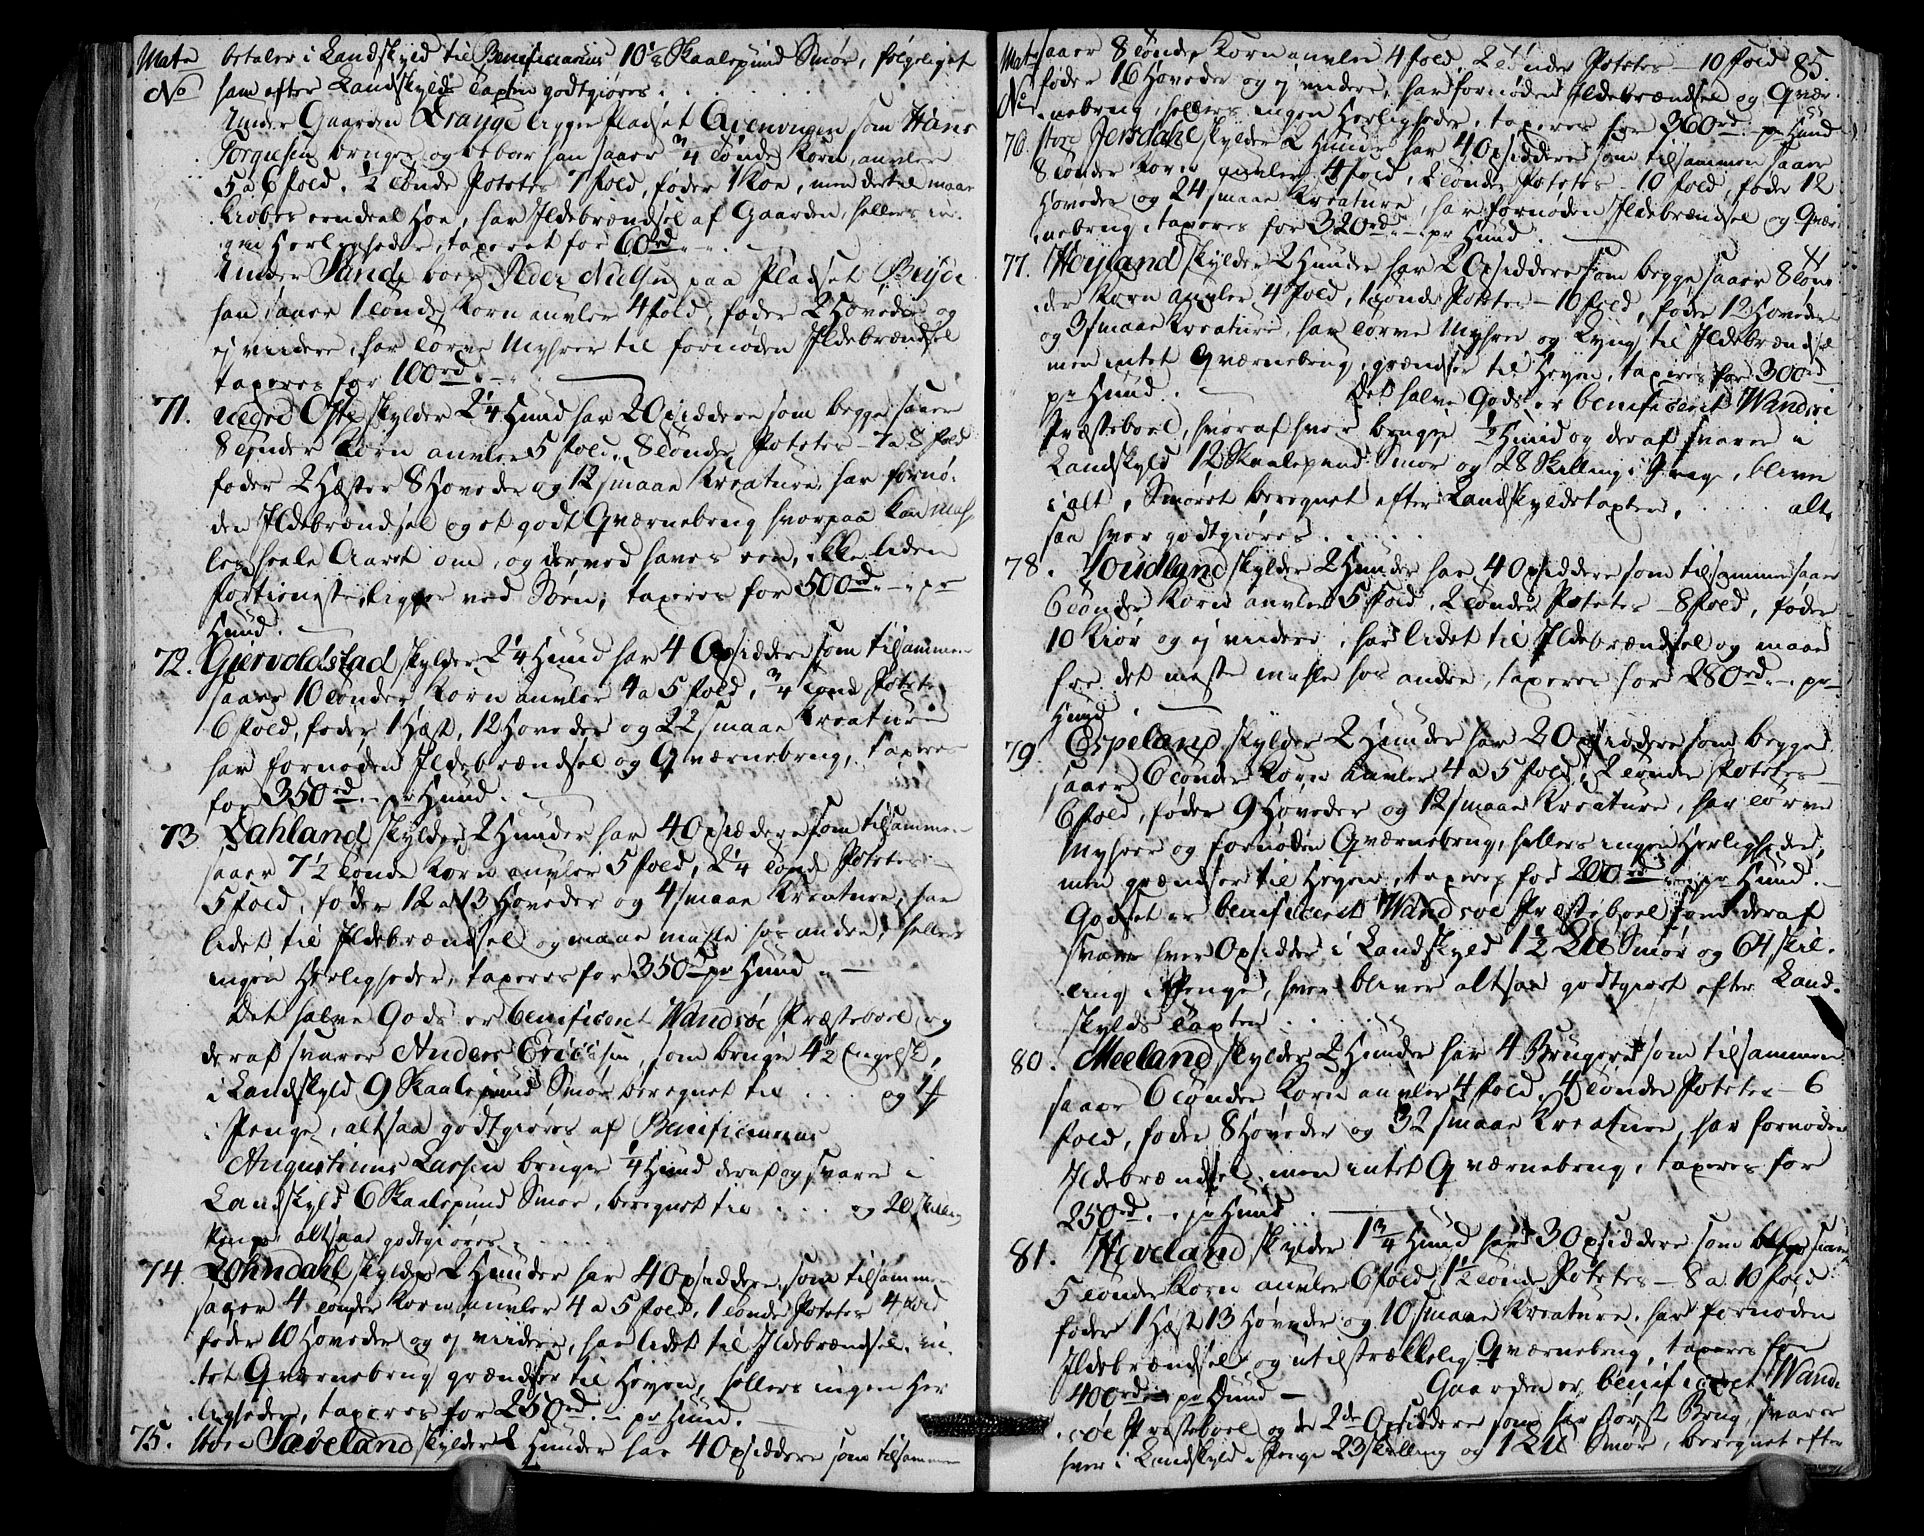 Mats betaler i Landskyld til Benificiarius 10⅛ Skaalepund Smør, følgeligt
No ham efter Landskylds Taxten godtgiøres.
Under Gaarden Drange ligger Pladset Qvenvigen som Hans
Torgiesen bruger og beboer han saaer ¾ Tønde Korn, anvler
5 a 6 fold, ½ Tønde Potetes 7 fold, føder 1 Koe, men dertil maae
kiøbes eendeel Høe, har Ildebrændsel af Gaarden, hellers in-
gen Herligheder, taxeret for 60rd
Under Sande boer Peder Nielsen paa Pladset
han saaer 1 Tønde Korn anvler 4 fold, føder 2 Høveder og
ej videre, har Torve Myhrer til fornøden Ildebrændsel
taxeres for 100rd.
71. nedre Ofte skylder 2¼ Hund har 2 Opsiddere som begge saaer
8 Tønder Korn anvler 5 fold, 8 Tønder Potetes – 7 a 8 fold
føder 2 Hæster 8 Høveder og 12 smaae Kreature, har fornø-
den Ildebrændsel og et godt Qværnebrug hvorpaa kan mah-
les heele Aaret om, og derved haves een, ikke liden
Portion ligger ved Søen; taxeres for 500rd pr
Hund.
72. Giervoldstad skylder 2¼ Hund har 4 Opsiddere som tilsammen
saaer 10 Tønder Korn anvler 4 a 5 fold, ¾ Tønd Potetes
6 fold, føder 1 Hæst, 12 Høveder og 22 smaae Kreature
har fornøden Ildebrændsel og Qværnebrug, taxeres
for 350rd. pr Hund.
73. Dahland skylder 2 Hunder har 4 Opsiddere som tilsammen
saaer 7½ Tønde Korn anvler 5 fold, 2¼ Tønde Potetes –
5 fold, føder 12 a 13 Høveder og 4 smaae Kreature, har
lidet til Ildebrændsel og maae mahle hos andre, hellers
ingen Herligheder, taxeres for 350rd pr Hund. –
Det halve Gods er benificeret Wandsøe Præsteboel og
deraf svarer Anders Ericksen, som bruger 4½ Engelsk,
i Landskyld 9 Skaalepund Smør beregnet til . . . og
i Penge, altsaa godtgiøres af Benificiarius
Augustinus Larsen bruger ¼ Hund deraf og svarer i
Landskyld 6 Skaalepund Smør, beregnet til . . . og 20 skilling
Penge altsaa godtgiøres.
74. skylder 2 Hunder har 4 Opsiddere, som tilsammen
saaer 4 Tønder Korn anvler 4 a 5 fold, 1 Tønde Potetes 4 fold
føder 10 Høveder og ej viidere, har lidet til Ildebrændsel, in-
tet Qværnebrug grændser til Heyen, hellers ingen Her-
ligheder, taxeres for 250rd. – pr Hund. –
75. Store Saveland skylder 2 Hunder har 4 Opsiddere som tilsammen
Mats saaer 8 Tønder Korn anvler 4 fold, 2 Tønder Potetes – 10 fold 85.
No føder 16 Høveder og ej videre, har fornøden Ildebrændsel og Qvær-
nebrug, hellers ingen Herligheder, taxeres for 360rd. pr Hund
76. Store Jersdahl skylder 2 Hunder har 4 Opsiddere som tilsammen saaer
8 Tønder Korn anvler 4 fold, 2 Tønder Potetes – 10 fold, føder 12
Høveder og 24 smaae Kreature, har fornøden Ildebrændsel og Qvær-
nebrug, taxeres for 320rd. – pr Hund.
77. Høyland skylder 2 Hunder har 2 Opsiddere som begge saaer 8 Tøn-
der Korn anvler 4 fold, 1 Tønde Potetes – 10 fold, føder 12 Høveder
og 3 smaae Kreature, har Torve Myhrer og Lyng til Ildebrændsel
men intet Qværnebrug, grændser til Heyen, taxeres for 300rd
pr Hund. Det halve Gods er benificeret Wandsøe
Præsteboel, hvoraf hver bruger ½ Hund og deraf svarer i
Landskyld 12 Skaalepund Smør og 28 Skilling i Penge, bliver
i alt, Smøret beregnet efter Landskyldstaxten, . . . . alt-
saa hver godtgiøres . . . . .
78. skylder 2 Hunder har 4 Opsiddere som tilsammen saaer
6 Tønder Korn anvler 5 fold, 2 Tønder Potetes – 8 fold, føder
10 Kiør og ej videre, har lidet til Ildebrændsel og maae
for det meste mahle hos andre, taxeres for 280rd. – pr
Hund.
79. Espeland skylder 2 Hunder har 2 Opsiddere som begge
saaer 6 Tønder Korn anvler 4 a 5 fold, 2 Tønder Potetes –
6 fold, føder 9 Høveder og 12 smaae Kreature, har Torve
Myhrer og fornøden Qværnebrug, hellers ingen Herligheder,
men grændser til Heyen, taxeres for 200rd. – pr Hund. –
Godset er benificeret Wandsøe Præsteboel som deraf
svarer hver Opsidder i Landskyld 1½ Smør og 64 skil-
ling i Penge, hver bliver altsaa godtgiort efter Land-
skylds Taxten . . . . .
80. Meeland skylder 2 Hunder har 4 Brugere som tilsammen
saaer 6 Tønder Korn anvler 4 fold, 4 Tønder Potetes – 6
fold, føder 8 Høveder og 32 smaae Kreature, har fornøden
Ildebrændsel men intet Qværnebrug, taxeres for
250rd. – pr Hund.
81. Heveland skylder 1¾ Hund har 3 Opsiddere som saaer
5 Tønder Korn anvler 6 fold, 1½ Tønde Potetes – 8 a 10 fold
føder 1 Hæst 13 Høveder og 10 smaae Kreature, har fornøden
Ildebrændsel og utilstrækkelig Qværnebrug, taxeres for
400rd – pr Hund – Gaarden er benificeret Wand-
søe Præsteboel og de 2de Opsiddere som har størst Brug, svarer
hver i Landskyld i Penge 23 skilling og 1 Smør, beregnet efter